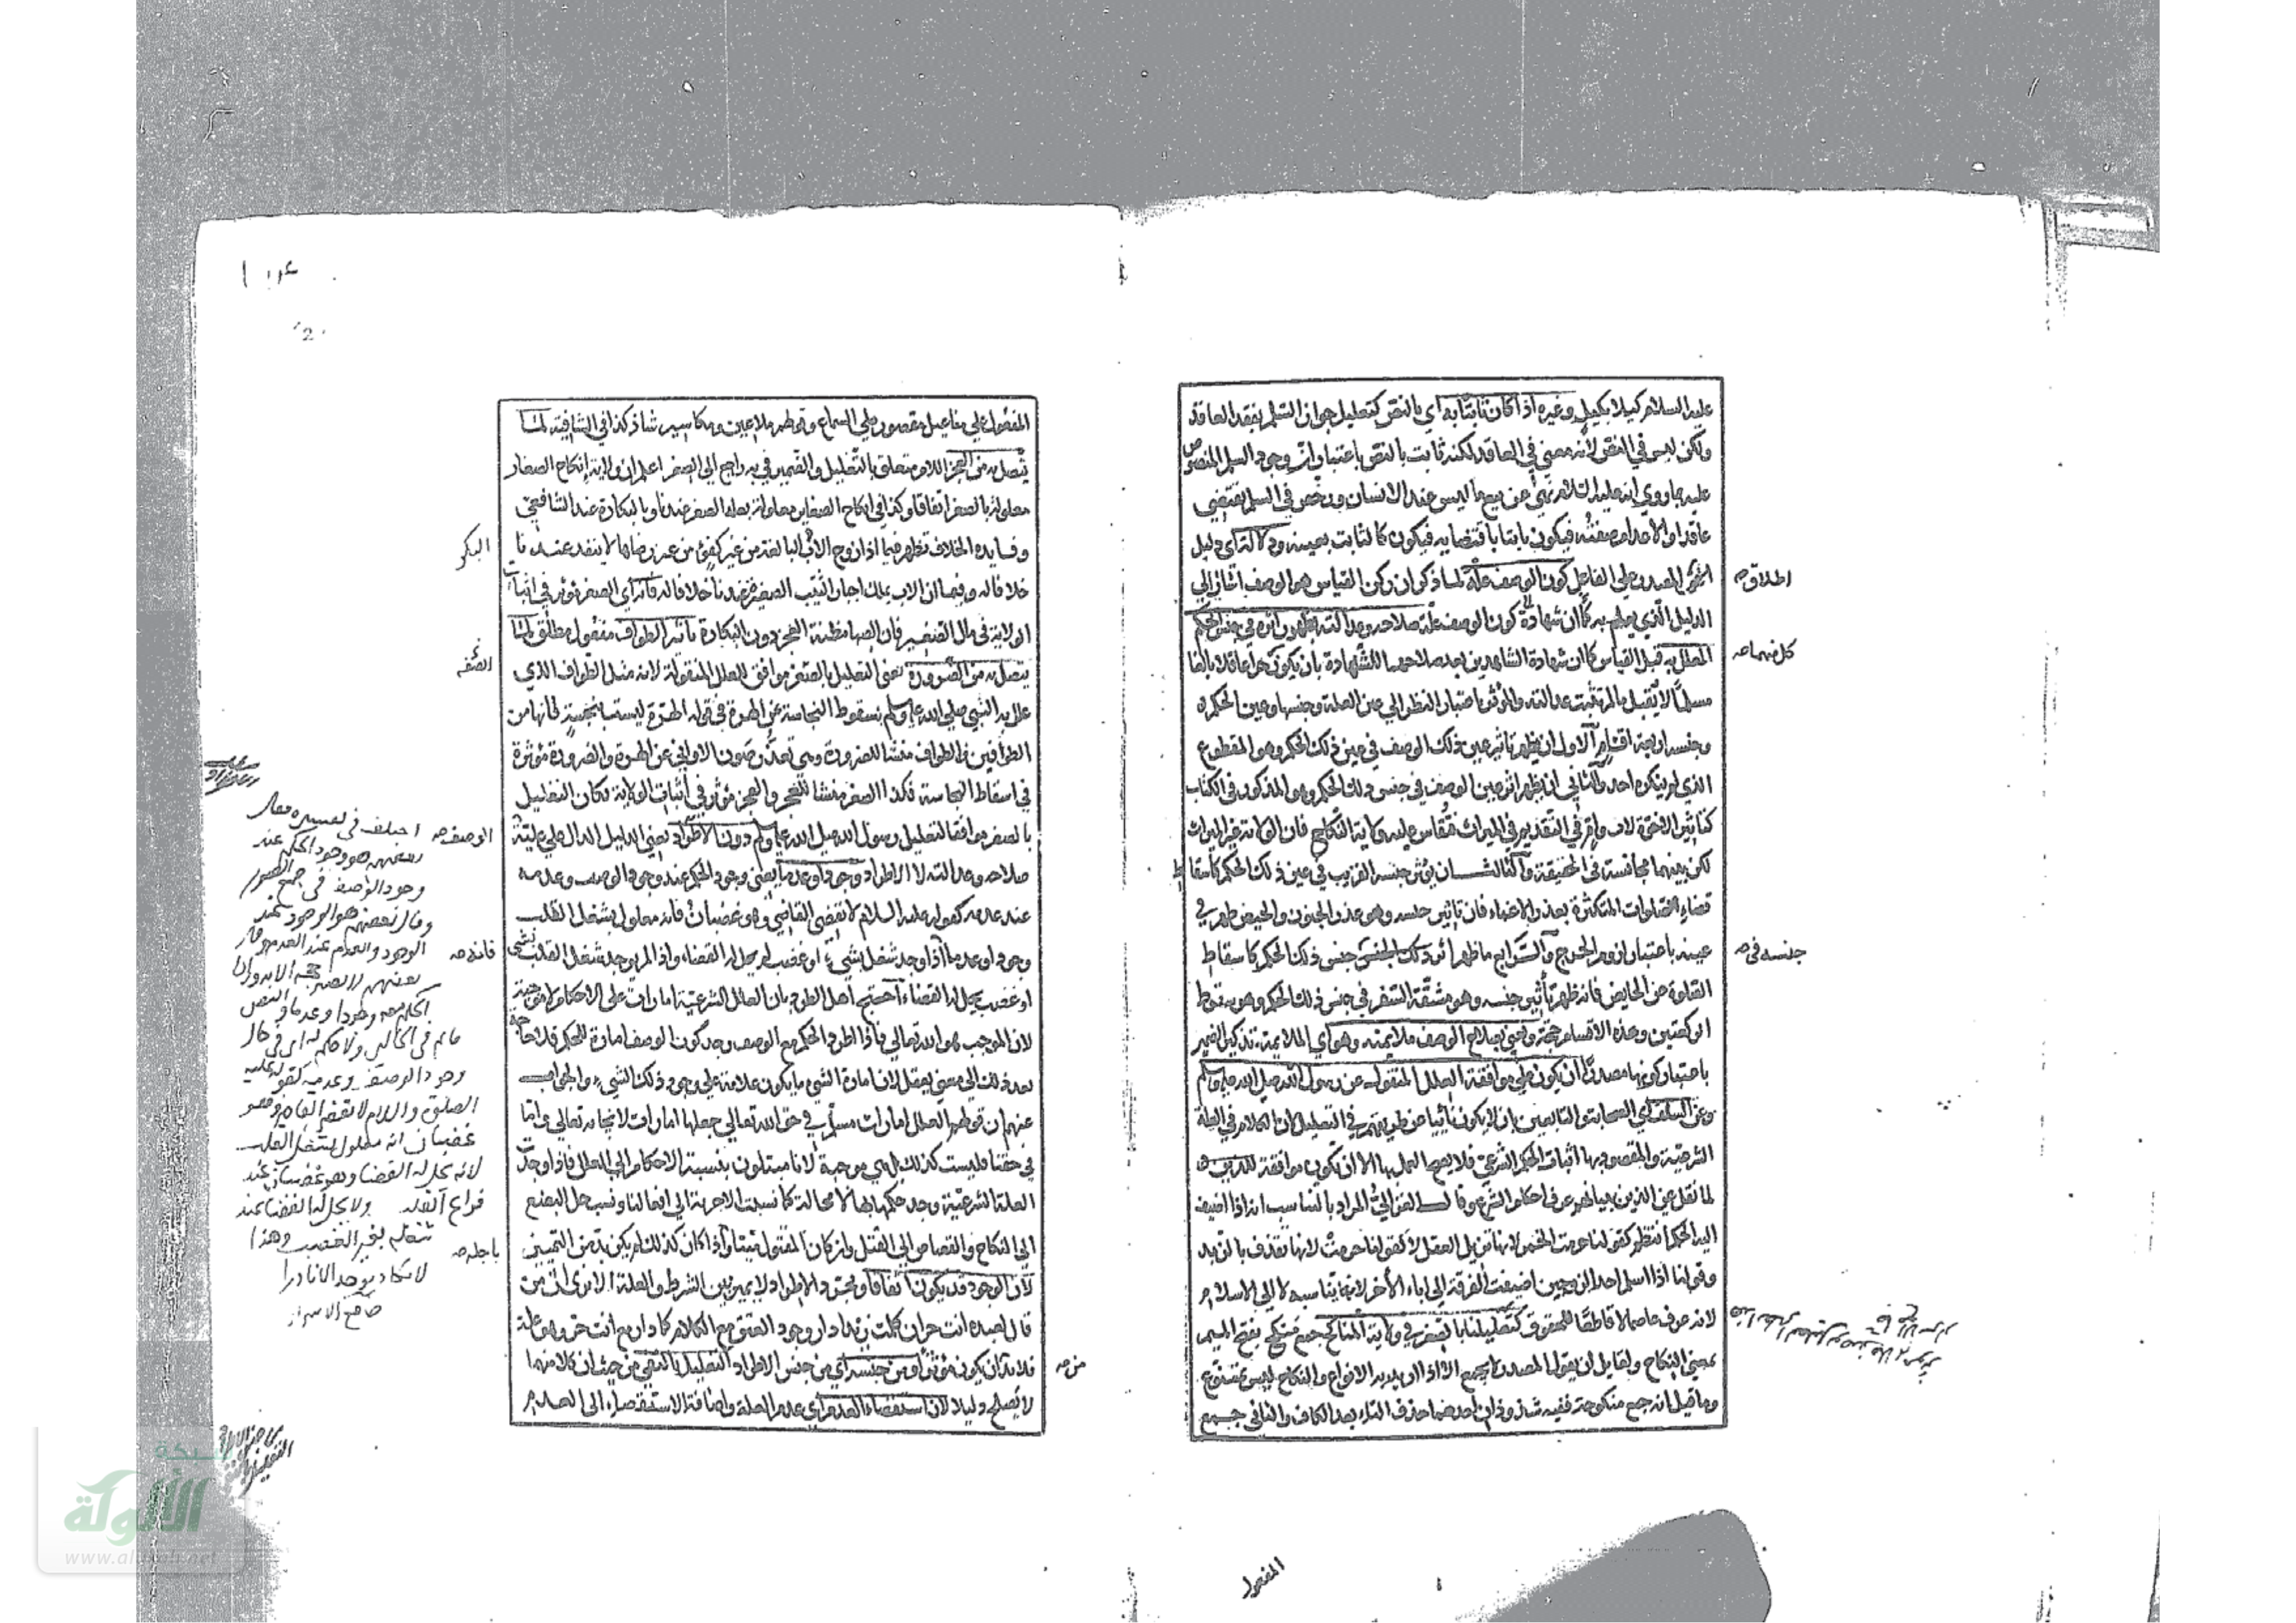 عليه السلام كيلا بكيل وغيره اذا كان ثابتا به اي بالنص كتعليل جواز السلم بفقد العاقد
ولكن ليس في النص لأنه معنى في العاقد لكنه ثابت بالنص باعتبار ان وجود السلم المنصوص
عليه بما روي انه عليه السلام نهى عن بيع ما ليس عند الانسان ورخص في السلم يقتضي
عاقدا والاعدام صفته فيكون ثابتا باقتضايه فيكون كالثابت بعينه ودلالة اي دليل
المصدر على الفاعل كون الوصف علة لما ذكر ان ركن القياس هو الوصف اشار الى
الدليل الذي يعلم به كون الوصف علة صلاحه وعدالته بظهور اثره في جنس الحكم
المعلل به قبل القياس كما ان شهادة الشاهدين بعد صلاحهما للشهادة بان يكون حرا عاقلا بالغا
مسلما لا يقبل ما لم تثبت عدالته والمؤثر باعتبار النظر الى عين العلة وجنسها وعين الحكم
وجنسه اربعة اقسام الاول ان يظهر تاثير عين ذلك الوصف في عين ذلك الحكم وهو المقطوع
الذي لم ينكره احد والثاني ان يظهر اثر عين الوصف في جنس ذلك الحكم وهو المذكور في الكتاب
كتاثير الاخوة لاب وام في التقديم في الميراث فقاس عليه ولاية النكاح فان الولاية غير الميراث
لكن بينهما مجانسة في الحقيقة والثالث ان يؤثر جنسه القريب في عين ذلك الحكم كاسقاط
قضاء الصلوات المتكثرة بعذر الاغماء فان تاثير جنسه وهو عذر الجنون والحيض ظهر في
عينه باعتبار لزوم الحرج والرابع ما ظهر اثر ذلك الجنس جنس ذلك الحكم كاسقاط
الصلوة عن الحايض فانه ظهر تأثير جنسه وهو مشقة السفر في جنس ذلك الحكم وهو سقوط
الركعتين وهذه الاقسام حجة ونعني بصلاح الوصف ملايمته وهو اي الملايمة تذكير الضمير
باعتبار كونها مصدرا ان يكون على موافقة العلل المنقولة عن رسول الله صلى الله عليه وسلم
وعن السلف اي الصحابة والتابعين بان لا يكون نائيا عن طريقهم في التعليل لان الكلام في العلة
الشرعية والمقصود بها اثبات الحكم الشرعي فلا يصح العمل بها الا ان تكون موافقة
لما نقل عن الذين ببيانهم عرف احكام الشرع وقال الغزالي المراد بالمناسب انه اذا اضيف
اليه الحكم انتظم كقولنا حرمت الخمر لانها تزيل العقل لا كقولنا حرمت لانها تقذف بالزبد
وقولنا اذا اسلم احد الزوجين اضيفت الفرقة الى اباء الآخر لانه يناسبه لا الى الاسلام
لانه عرف عاصما لا قاطعا للحقوق كتعليلنا بالصغر في ولاية المناكح جمع منكح بفتح الميم
بمعنى النكاح ولقايل ان يقول المصدر لا يجمع الا اذا اريد به الانواع والنكاح ليس بمتنوع
وما قيل انه جمع منكوحة ففيه شذوذان احدهما حذف التاء بعد الكاف والثاني جمع
اطلاق صح
كل منهما صح
جنسه في صح
المفعول
المفعول على مفاعيل مقصور على السماع وقولهم ملاعين ومكاسير شاذ كذا في الشافية لما
يتصل به من العجز اللام متعلق بالتعليل والضمير في به راجع الى الصغر اعلم ان ولاية إنكاح الصغار
معلولة بالصغر اتفاقا وكذا في انكاح الصغاير معلولة بعلة الصغر عندنا وبالبكارة عند الشافعي
وفايدة الخلاف تظهر فيما اذا زوج الاب البالغة من غير كفئ من غير رضاها لا ينفذ عندنا
خلافا له وفيما ان الاب يملك اجبار الثيب الصغيرة عندنا خلافا له فانه اي الصغر مؤثر في اثبات
الولاية في مال الصغير فان الصبا مظنة العجز دون البكارة تأثير الطواف مفعول مطلق لما
يتصل به من الضرورة يعني التعليل بالصغر موافق للعلل المنقولة لانه مثل الطواف الذي
علل به النبي صلى الله عليه وسلم بسقوط النجاسة عن الهرة في قوله الهرة ليست بنجسة فانها من
الطوافين فالطواف منشأ للضرورة وهي تعذر صون الاواني عن الهرة والضرورة مؤثرة
في اسقاط النجاسة فكذا الصغر منشأ للعجز والعجز مؤثر في اثبات الولاية فكان التعليل
بالصغر موافقا لتعليل رسول الله صلى الله عليه وسلم دون الاطراد يعني الدليل الدال على علية
صلاحه وعدالته لا الاطراد وجودا وعدما يعني وجود الحكم عند وجود الوصف وعدمه
عند عدمه كقوله عليه السلام لا يقضي القاضي وهو غضبان فانه معلول بشغل القلب
وجودا وعدما اذا وجد شغل بشيء او غضب لم يحل له القضاء واذا لم يوجد شغل القلب بشي
او غضب يحل له القضاء احتج اهل الطرد بان العلل الشرعية امارات على الاحكام لا موجبة
لان الموجب هو الله تعالى فاذا اطرد الحكم مع الوصف وجد كون الوصف امارة للحكم فلا حاجة
بعد ذلك الى معنى يعقل لان امارة الشيء ما يكون علامة على وجود ذلك الشيء والجواب
عنهم ان قولهم العلل امارات مسلم في حق الله تعالى جعلها امارات لايجابه تعالى واما
في حقنا فليست كذلك بل هي موجبة لانا مبتلون بنسبة الاحكام الى العلل فاذا وجد
العلة الشرعية وجد حكمها بها لا محالة كما نسبت الاجزية الى افعالنا ونسب حل البضع
الى النكاح والقصاص الى القتل وان كان المقتول ميتا واذا كان كذلك لم يكن بد من التمييز
لان الوجود قد يكون اتفاقا ومجرد الاطراد لا يميز بين الشرط والعلة الا يرى ان من
قال لعبده انت حر ان كلمت زيدا دار وجود العتق مع الكلام كما دار مع انت حر وهو علة
فلا بد ان يكون مؤثرا ومن جنسه اي من جنس الاطراد التعليل بالنفي من حيث ان كلا منهما
لا يصلح دليلا لان استقصاء العدم اي عدم العلة واضافة الاستقصاء الى العدم
البكر
الصغيرة
الوصف صح
فانه صح
باجله صح
من صح
اختلف في تفسيره فقال
بعضهم هو وجود الحكم عند
وجود الوصف في جميع الصور
وقال بعضهم هو الوجود عند
الوجود والعدم عند العدم وقال
وجود الوصف وعدمه كقوله عليه
الصلوة والسلام لا يقضي القاضي وهو
غضبان انه معلول بشغل القلب
لانه يحل له القضا وهو غضبان عند
فراغ القلب ولا يحل له القضا عند
شغله بغير الغضب وهذا
لا يكاد يوجد الا نادرا
2
شبكة
الألوكة
www.alukah.net